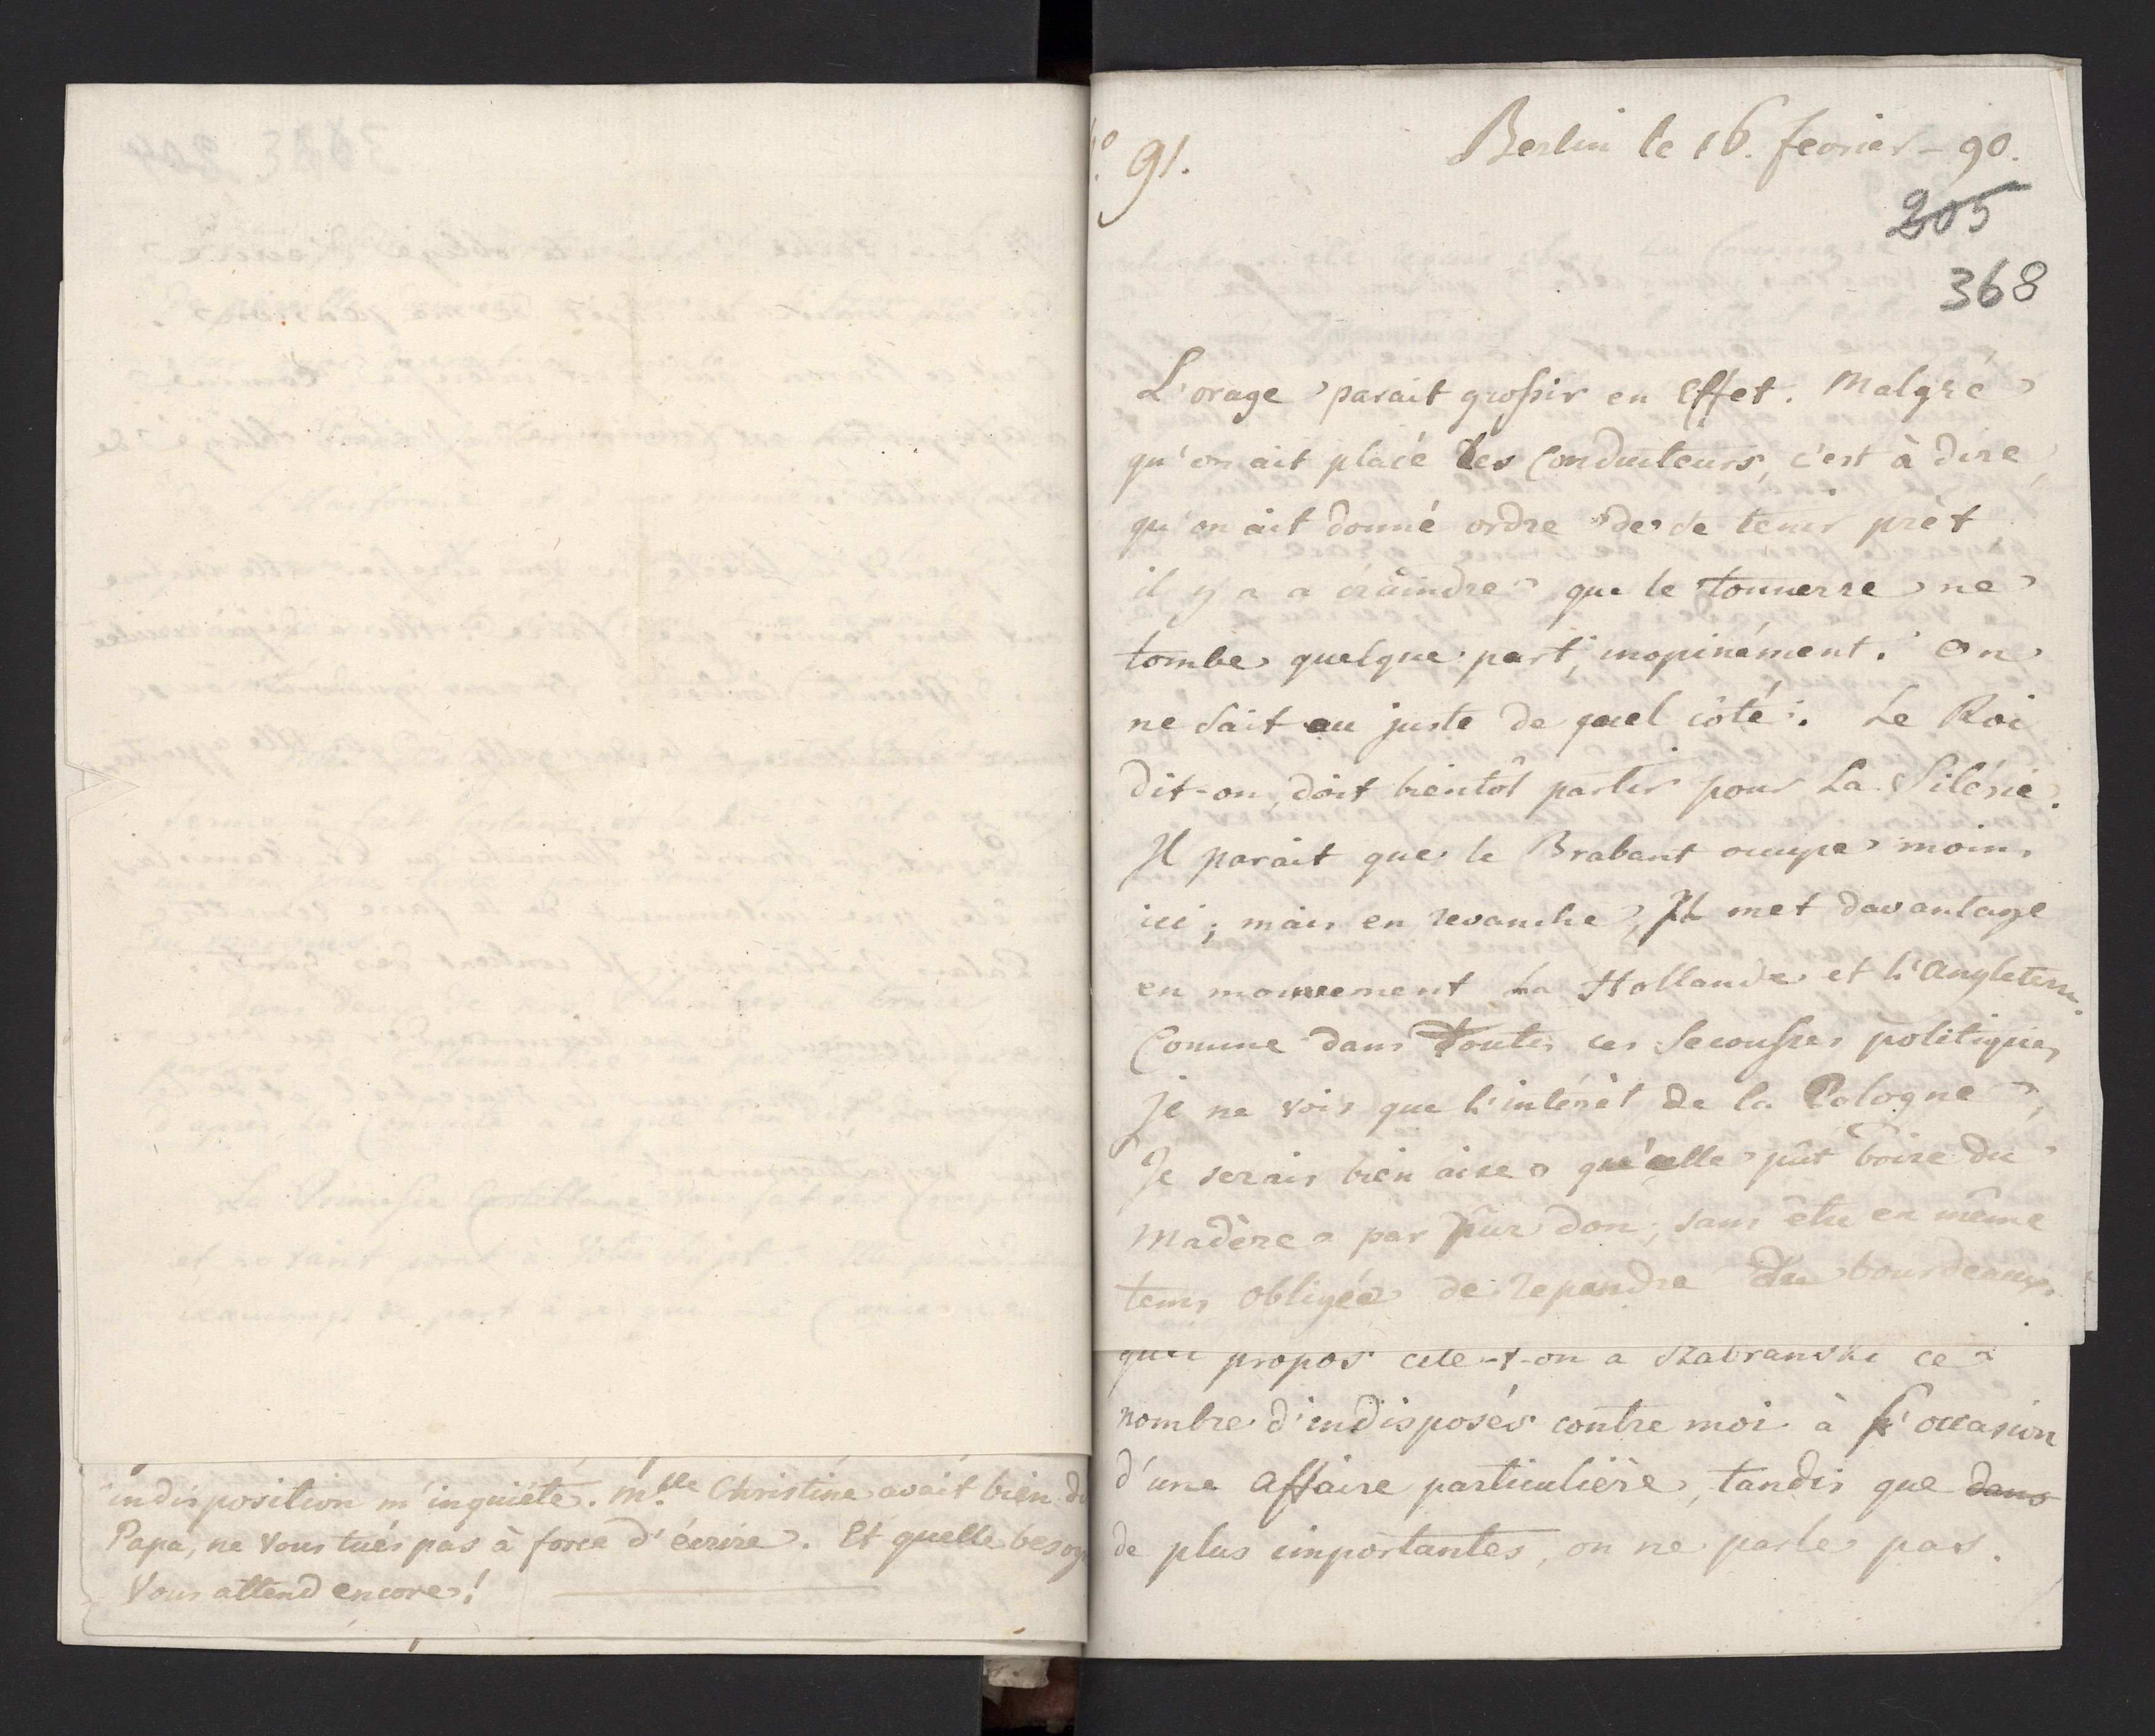 indisposition m'inquiéte. Mslle Christine avait bien
Papa, ne vous tués pas à force d'écrire. Et quelle
Vous attend encore!
91.
Berlin le 16. fevrier - 90.
205
368
L'orage parait grossir en Effet. Malgré
qu'on ait placé les Conducteurs, c'est à dire,
qu'on ait donné ordre de se tenir prèt
il y a a craindre que le tonnerre ne
tombe quelque part, inopinément. On
ne sait au juste de quel côté. Le Roi
dit-on, doit bientôt partir pour La Silésie.
Il parait que le Brabant occupe moins
ici; mais en revanche, Il met davantage
en mouvement La Hollande et L'Angleterre.
Comme dans toutes ces Secousses politiques
je ne vois que l'intérèt de la Pologne,
Je serais bien aise qu'elle pût boire du
Madère par pur don, sans être en même
tems obligée de repandre du bourdeaux.
propos cite-t-on a Zabranski ce
nombre d'indisposés contre moi à l'occasion
d'une affaire particulière, tandis que dans
de plus importantes, on ne parle pas.